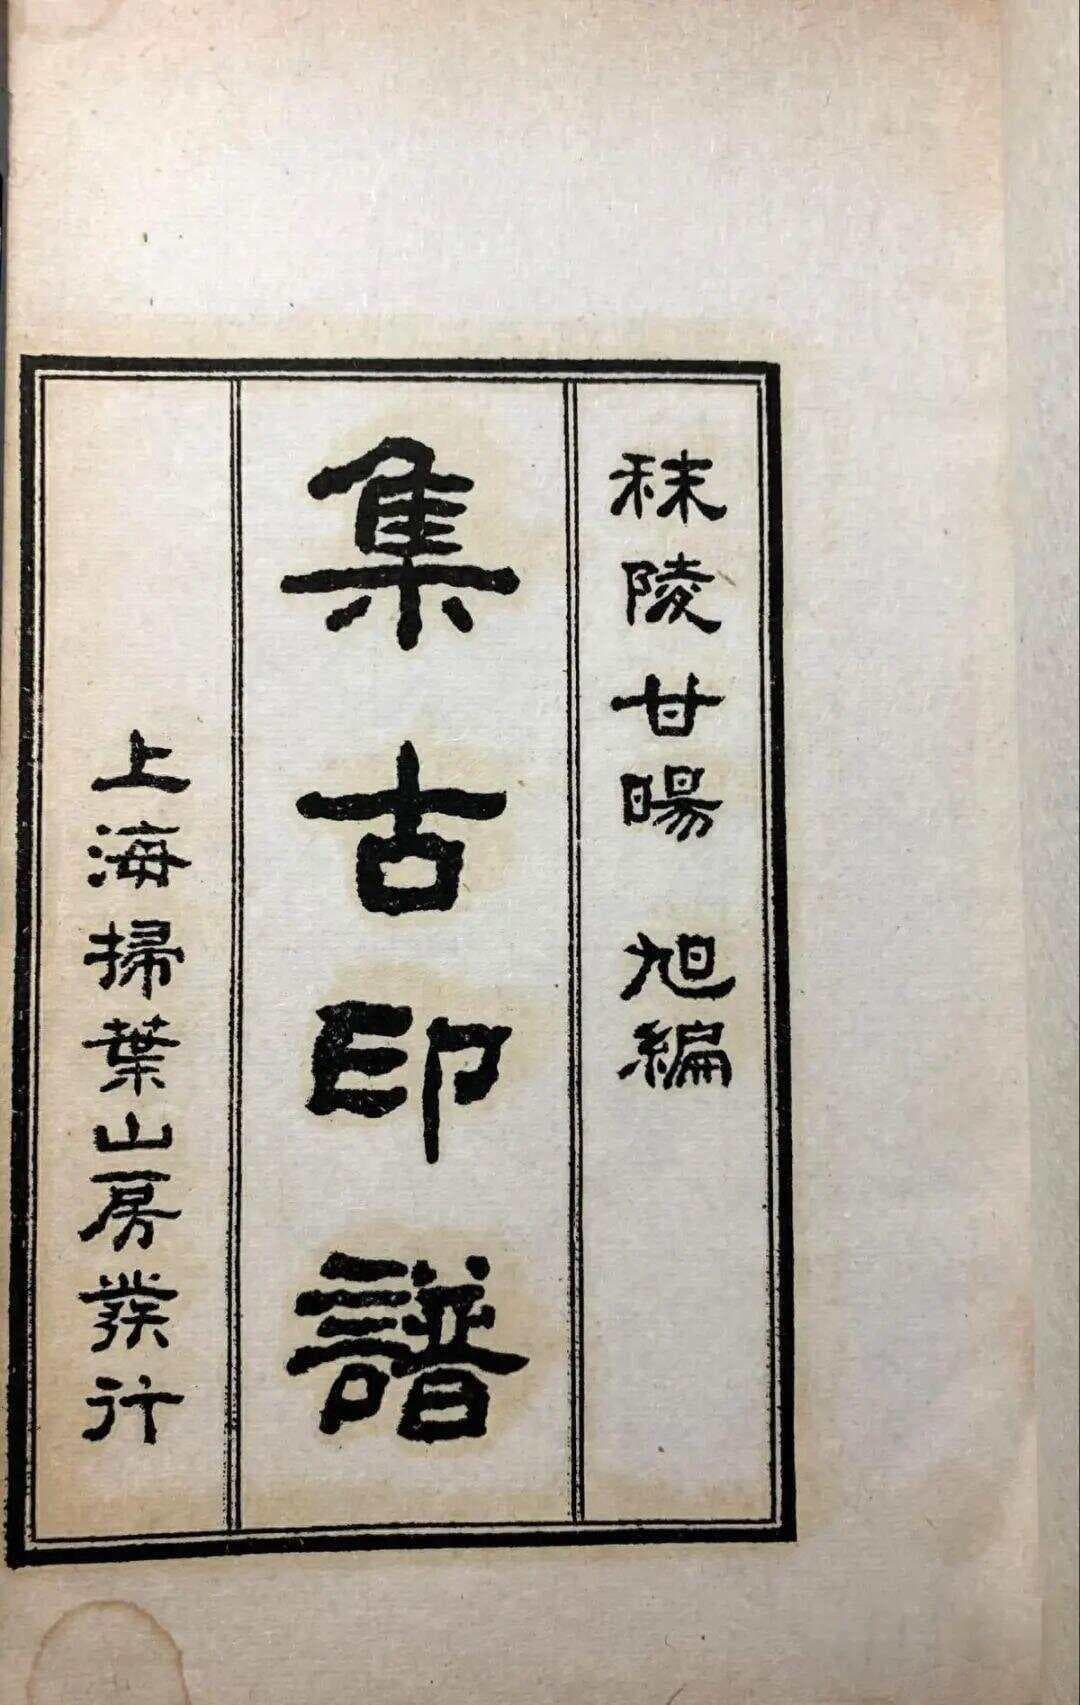 秣陵甘暘 旭編
集古印譜
上海掃葉山房發行